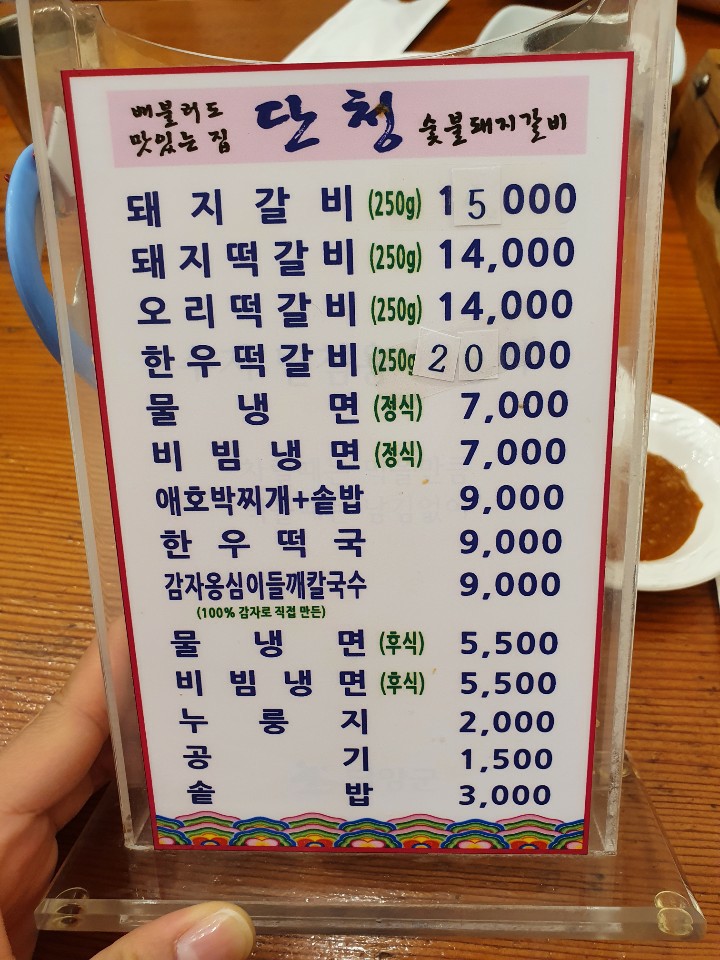 배불러도
맛있는 집
단청 숯불돼지갈비
돼지갈비 (250g) 15,000
돼지떡갈비 (250g) 14,000
오리떡갈비 (250g) 14,000
한우떡갈비 (250g 20,000
물냉면 (정식) 7,000
비빔냉면 (정식) 7,000
애호박찌개+솥밥 9,000
한우떡국 9,000
감자옹심이들깨칼국수 9,000
(100% 감자로 직접 만든)
물냉면 (후식) 5,500
비빔냉면 (후식) 5,500
누룽지 2,000
공기 1,500
솥밥 3,000